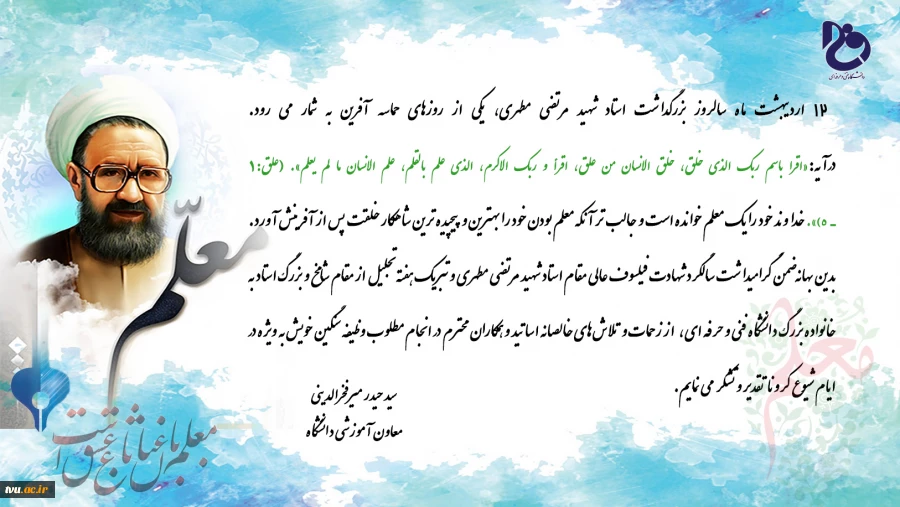 دانشگاه فنی و حرفه‌ای
۱۲ اردیبهشت ماه سالروز بزرگداشت استاد شهید مرتضی مطهری، یکی از روزهای حماسه آفرین به شمار می رود.
در آیه: «اقرا باسم ربک الذی خلق، خلق الانسان من علق، اقرأ و ربک الاکرم، الذی علم بالقلم، علم الانسان ما لم یعلم». (علق: ۱
ـ ۵)». خداوند خود را یک معلم خوانده است و جالب تر آنکه معلم بودن خود را بهترین و پیچیده ترین شاهکار خلقت پس از آفرینش آورد.
بدین بهانه ضمن گرامیداشت سالگرد شهادت فیلسوف عالی مقام استاد شهید مرتضی مطهری و تبریک هفته تجلیل از مقام شامخ و بزرگ استاد به
خانواده بزرگ دانشگاه فنی و حرفه ای، از زحمات و تلاش های خالصانه اساتید و همکاران محترم در انجام مطلوب وظیفه سنگین خویش به ویژه در
ایام شیوع کرونا تقدیر و تشکر می نمایم.
سید حیدر میرفخرالدینی
معاون آموزشی دانشگاه
معلّم
معلم
معلم باغبان باغ عشق است
tvu.ac.ir